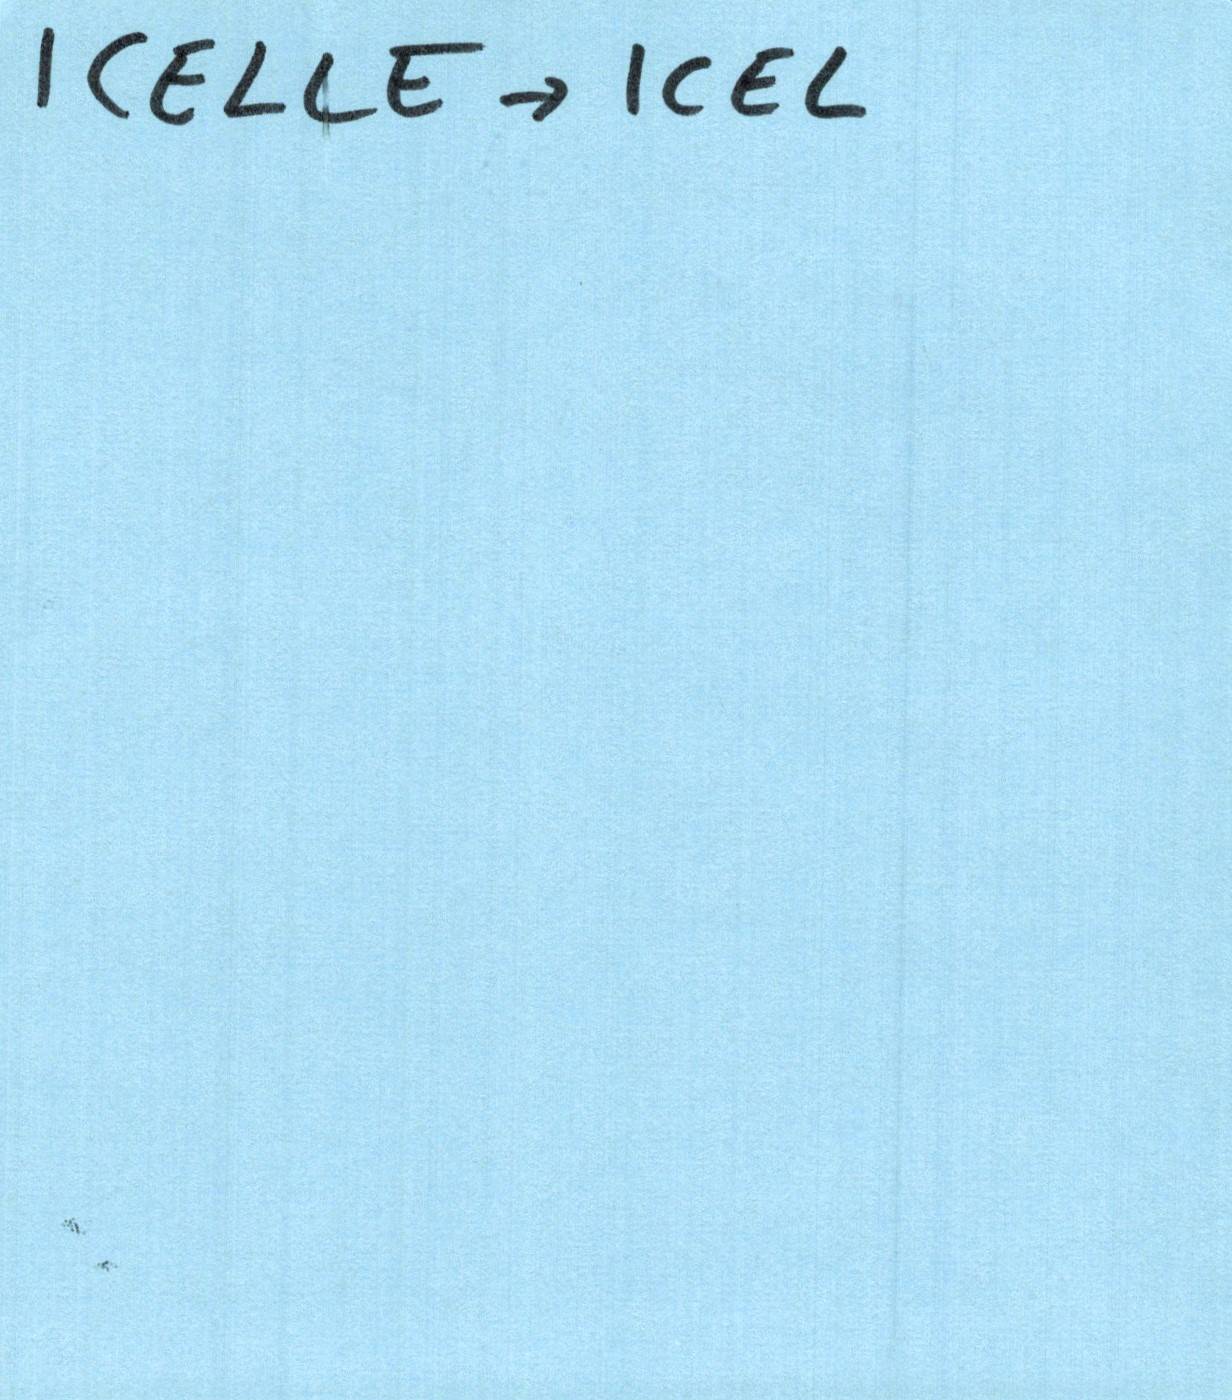 ICELLE → ICEL